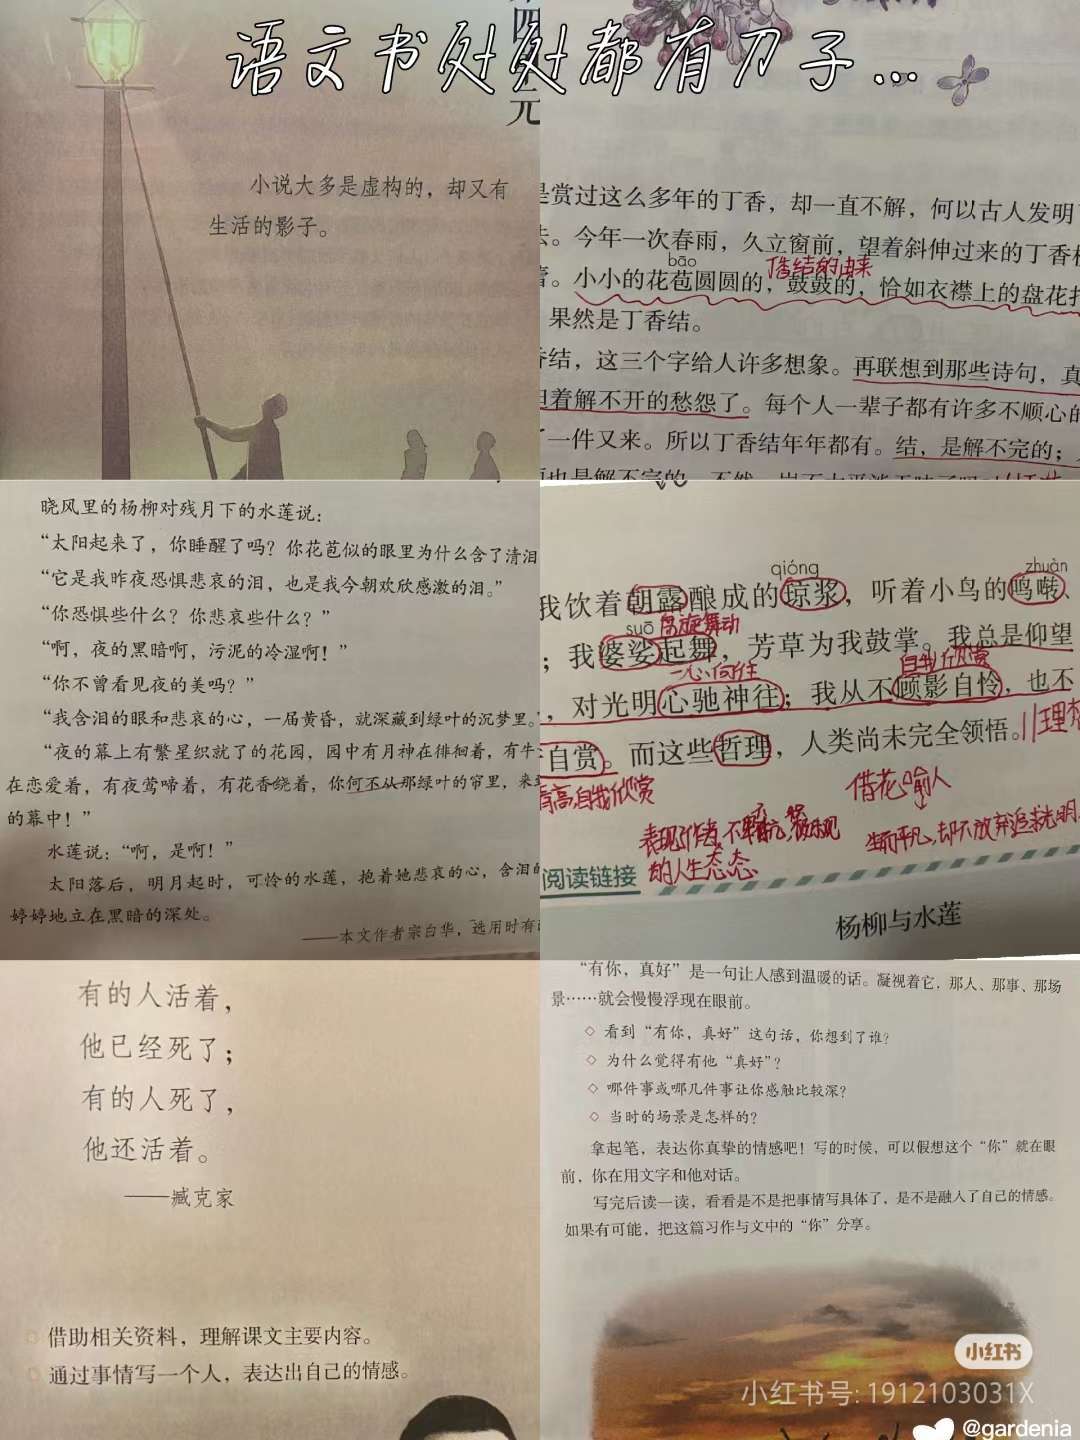 语文书处处都有刀子...
四
元
小说大多是虚构的，却又有
生活的影子。
是赏过这么多年的丁香，却一直不解，何以古人发明
去。今年一次春雨，久立窗前，望着斜伸过来的丁香
bāo
丁香结的由来
。小小的花苞圆圆的，鼓鼓的，恰如衣襟上的盘花
果然是丁香结。
香结，这三个字给人许多想象。再联想到那些诗句，真
担着解不开的愁怨了。每个人一辈子都有许多不顺心的
一件又来。所以丁香结年年都有。结，是解不完的；
也是解不完的，不然，岂不太平淡无味了吗
晓风里的杨柳对残月下的水莲说：
“太阳起来了，你睡醒了吗？你花苞似的眼里为什么含了清泪
“它是我昨夜恐惧悲哀的泪，也是我今朝欢欣感激的泪。”
“你恐惧些什么？你悲哀些什么？”
“啊，夜的黑暗啊，污泥的冷湿啊！”
“你不曾看见夜的美吗？”
“我含泪的眼和悲哀的心，一届黄昏，就深藏到绿叶的沉梦里。”
“夜的幕上有繁星织就了的花园，园中有月神在徘徊着，有牛
在恋爱着，有夜莺啼着，有花香绕着，你何不从那绿叶的帘里，来到
的幕中！”
水莲说：“啊，是啊！”
太阳落后，明月起时，可怜的水莲，抱着她悲哀的心，含泪的
婷婷地立在黑暗的深处。
——本文作者宗白华，选用时有
qióng
zhuàn
我饮着朝露酿成的琼浆，听着小鸟的鸣啭、
suō
盘旋舞动
；我婆娑起舞，芳草为我鼓掌。我总是仰望
一心向往
自我欣赏
，对光明心驰神往；我从不顾影自怜，也不
自赏。而这些哲理，人类尚未完全领悟。
理想
高,自我欣赏
借花喻人
表现作者不
乐观
的人生态态
平凡,却不放弃追求光明
阅读链接
杨柳与水莲
有的人活着，
他已经死了；
有的人死了，
他还活着。
——臧克家
借助相关资料，理解课文主要内容。
通过事情写一个人，表达出自己的情感。
“有你，真好”是一句让人感到温暖的话。凝视着它，那人、那事、那场
景……就会慢慢浮现在眼前。
◇ 看到“有你，真好”这句话，你想到了谁？
◇ 为什么觉得有他“真好”？
◇ 哪件事或哪几件事让你感触比较深？
◇ 当时的场景是怎样的？
拿起笔，表达你真挚的情感吧！写的时候，可以假想这个“你”就在眼
前，你在用文字和他对话。
写完后读一读，看看是不是把事情写具体了，是不是融入了自己的情感。
如果有可能，把这篇习作与文中的“你”分享。
小红书
小红书号：1912103031X
@gardenia